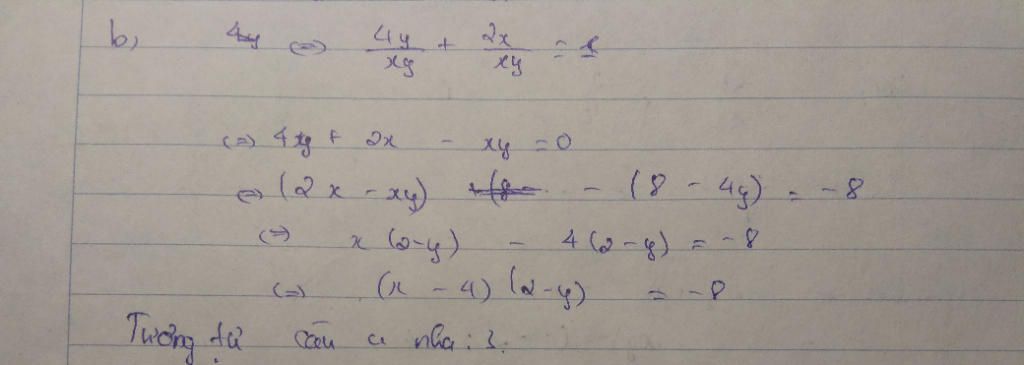 b, ⇔ 4y/xy + 2x/xy = 1
⇔ 4y + 2x - xy = 0
⇔ (2x - xy) - (8 - 4y) = -8
⇔ x(2-y) - 4(2-y) = -8
⇔ (x - 4)(2-y) = -8
Tương tự câu a nha :3.